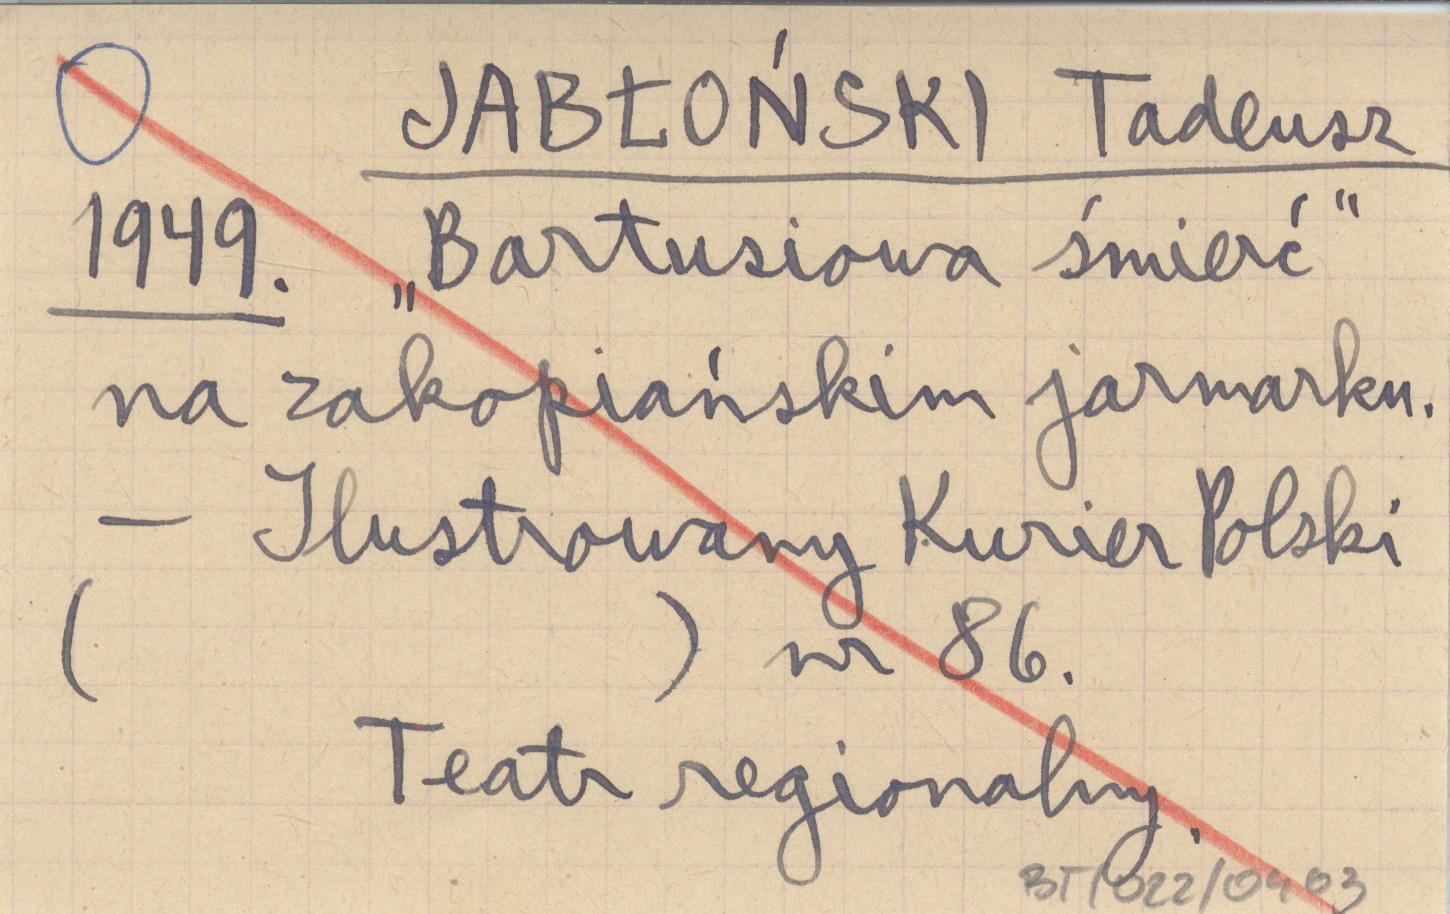 JABŁOŃSKI Tadeusz
1949. „Bartusiowa śmierć"
na zakopiańskim jarmarku.
— Ilustrowany Kurier Polski
( ) nr 86.
Teatr regionalny.
BT/022/0403